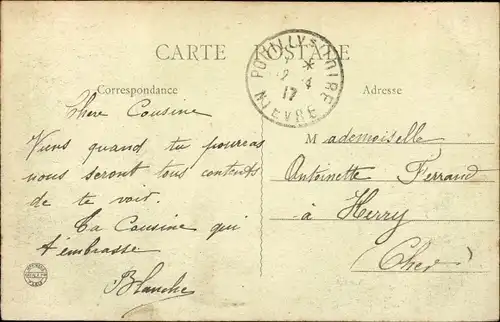 CARTE POSTALE
Correspondance
Chere Cousine
Viens quand tu pourras
nous seront tous contents
de te voir.
Ta Cousine qui
t'embrasse
Blanche
POUILLY S LOIRE
17
NIEVRE
Adresse
Mademoiselle
Antoinette Ferrand
à Herry
(Cher)